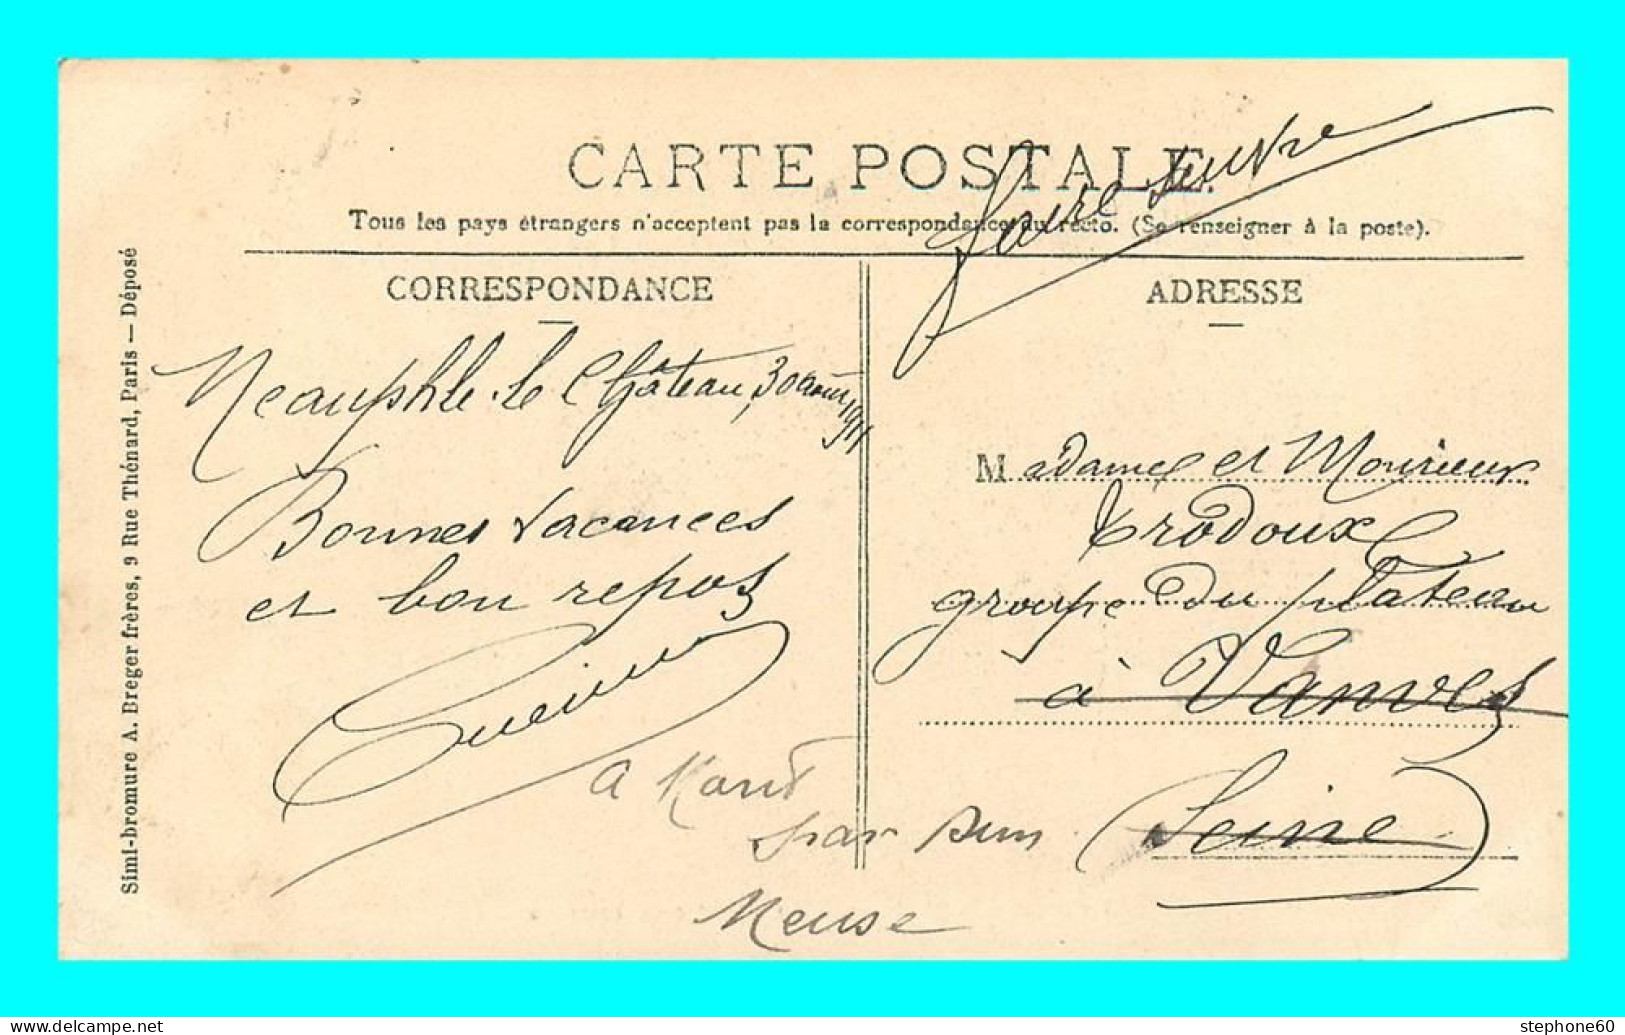 CARTE POSTALE
faire suivre
Tous les pays étrangers n'acceptent pas la correspondance au recto. (Se renseigner à la poste).
CORRESPONDANCE
Neauphle-le Château, 30 août 1911
Bonnes vacances
et bon repos
ADRESSE
Madame et Monsieur
Trodoux
groupe du plateau
à Vanves
(Seine)
a
par Dun
Meuse
Simi-bromure A. Breger frères, 9 Rue Thénard, Paris — Déposé
www.delcampe.net
stephone60